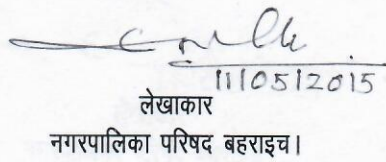 11/05/2015
लेखाकार
नगरपालिका परिषद बहराइच।